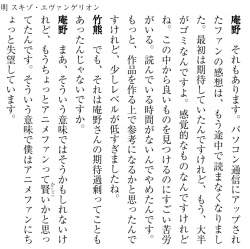 明 スキゾ・エヴァンゲリオン
庵野　それもあります。パソコン通信にアップされ
たファンの感想は、もう途中で読まなくなりまし
た。最初は期待していたんですけれど、もう、大半
がゴミなんですよ。感覚的なものなんでしょうけれど
ね。この中から良いものを見つけるのにすごい苦労
がいる。読んでいる時間がないんでやめたんです。
もっと、作品を作る上で参考になるかと思ったんで
すけれど、少しレベルが低すぎましたね。
竹熊　でも、それは庵野さんの期待過剰ってことも
あったんじゃないですか。
庵野　まあ、そういう意味ではそうかもしれないけ
れど、もうちょっとアニメファンって賢いかと思っ
てたんです。そういう意味で僕はアニメファンにち
ょっと失望しています。